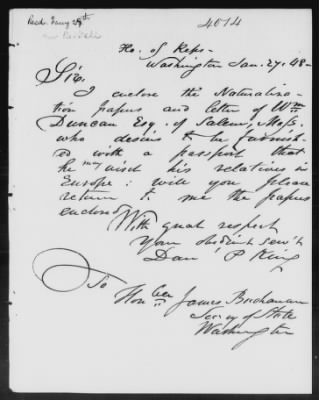 Recd. Jany 29th
4014
Ho. of Reps-
Washington Jan. 27. 48-
Sir.
I enclose the Naturaliza-
tion papers and letter of Wm
Duncan Esq. of Salem, Mass.
who desires to be furnish-
ed with a passport that
he may visit his relatives in
Europe: will you please
return to me the papers
enclosed
With great respect
Your obedient serv't
Danl P King
To
Hon.
James Buchanan
Secy of State
Washington